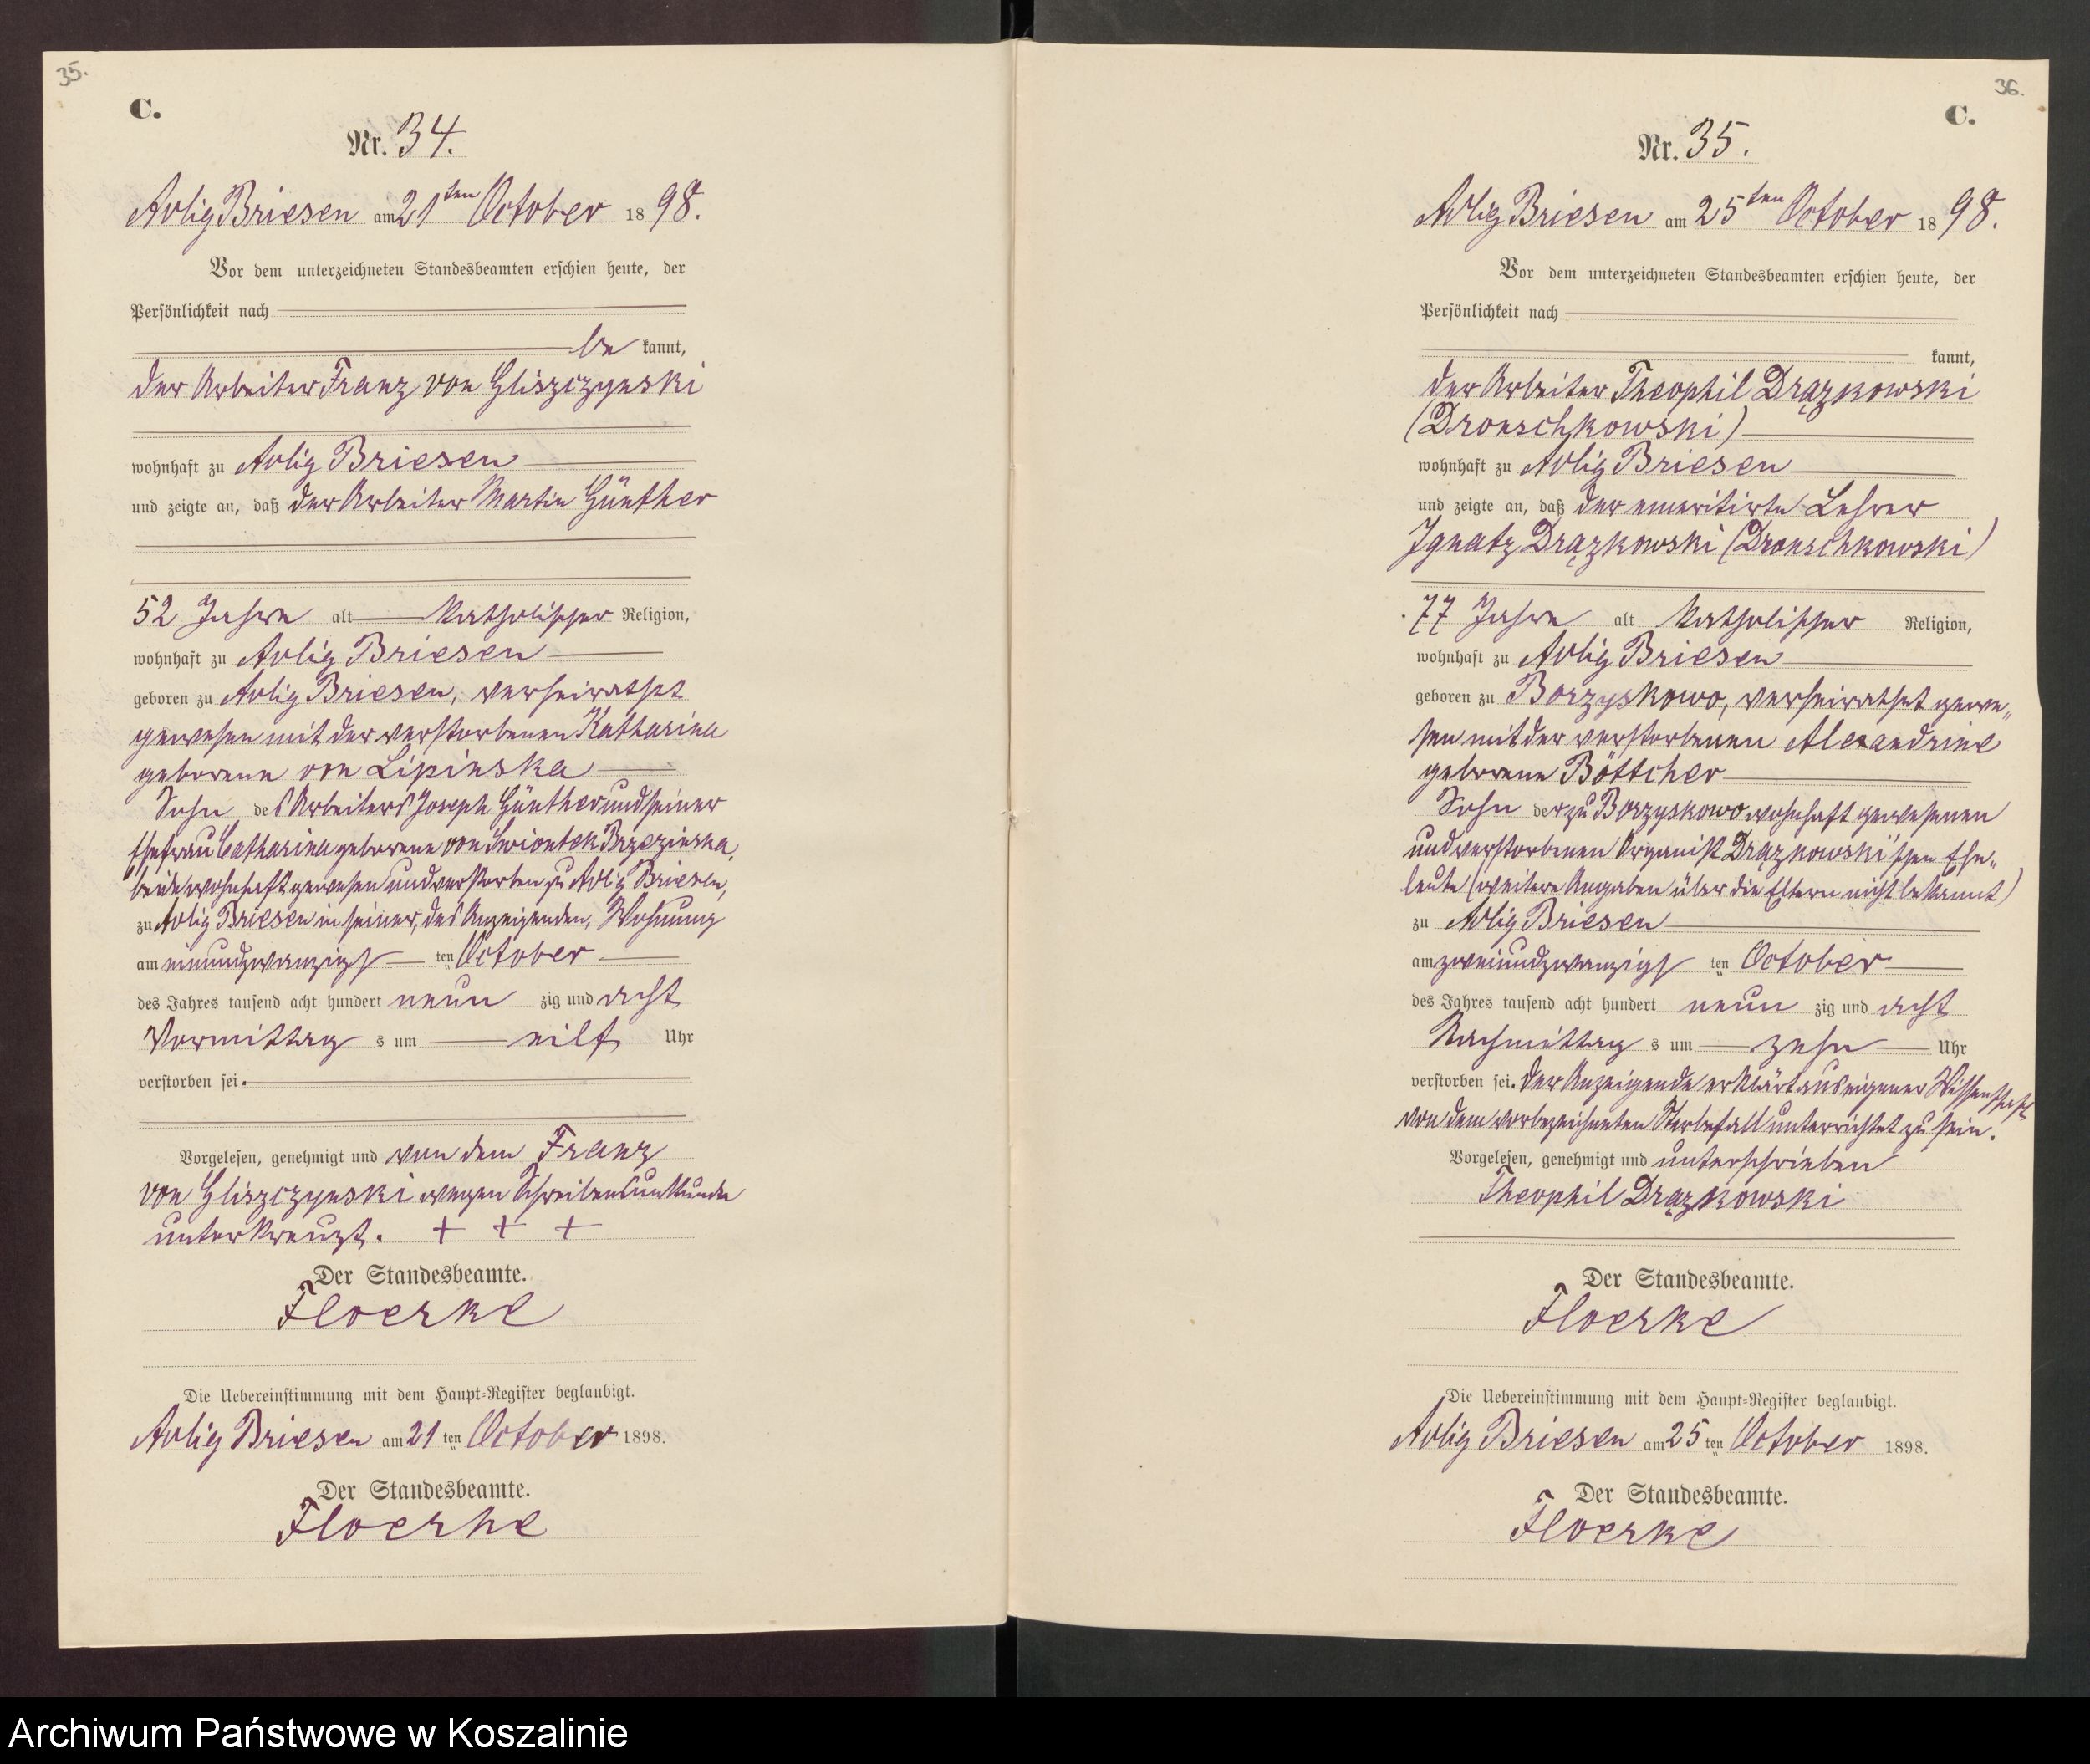 35.
C.
Nr. 34.
Adlig Briesen am 21 ten October 1898.
Vor dem unterzeichneten Standesbeamten erschien heute, der
Persönlichkeit nach
be kannt,
der Arbeiter Franz von Gliszczynski
wohnhaft zu Adlig Briesen
und zeigte an, daß der Arbeiter Martin Günther
52 Jahre alt katholischer Religion,
wohnhaft zu Adlig Briesen
geboren zu Adlig Briesen, verheirathet
gewesen mit der verstorbenen Katharina
geborenen von Lipinska
Sohn des Arbeiters Joseph Günther und seiner
Ehefrau Catharina geborenen von Swiontek Brzezinska,
beide wohnhaft gewesen und verstorben zu Adlig Briesen,
zu Adlig Briesen in seiner, des Anzeigenden, Wohnung
am einundzwanzigs ten October
des Jahres tausend acht hundert neun zig und acht
Vormittag s um eilf Uhr
verstorben sei.
Vorgelesen, genehmigt und von dem Franz
von Gliszczynski wegen Schreibensunkunde
unterkreuzt. + + +
Der Standesbeamte.
Floerke
Die Uebereinstimmung mit dem Haupt-Register beglaubigt.
Adlig Briesen am 21 ten October 1898.
Der Standesbeamte.
Floerke
36.
C.
Nr. 35.
Adlig Briesen am 25 ten October 1898.
Vor dem unterzeichneten Standesbeamten erschien heute, der
Persönlichkeit nach
kannt,
der Arbeiter Theophil Drązkowski
(Dronschkowski)
wohnhaft zu Adlig Briesen
und zeigte an, daß der emeritirte Lehrer
Ignatz Drązkowski (Dronschkowski)
77 Jahre alt katholischer Religion,
wohnhaft zu Adlig Briesen
geboren zu Borzyskowo, verheirathet gewe„
sen mit der verstorbenen Alexandrine
geborene Böttcher
Sohn der zu Borzyskowo wohnhaft gewesenen
und verstorbenen Organist Drązkowski'schen Ehe„
leute (weitere Angaben über die Eltern nicht bekannt)
zu Adlig Briesen
am zweiundzwanzigs ten October
des Jahres tausend acht hundert neun zig und acht
Nachmittag s um zehn Uhr
verstorben sei. Der Anzeigende erklärt aus eigener Wissenschaft
von dem vorbezeichneten Sterbefall unterrichtet zu sein.
Vorgelesen, genehmigt und unterschrieben
Theophil Drązkowski
Der Standesbeamte.
Floerke
Die Uebereinstimmung mit dem Haupt-Register beglaubigt.
Adlig Briesen am 25 ten October 1898.
Der Standesbeamte.
Floerke
Archiwum Państwowe w Koszalinie